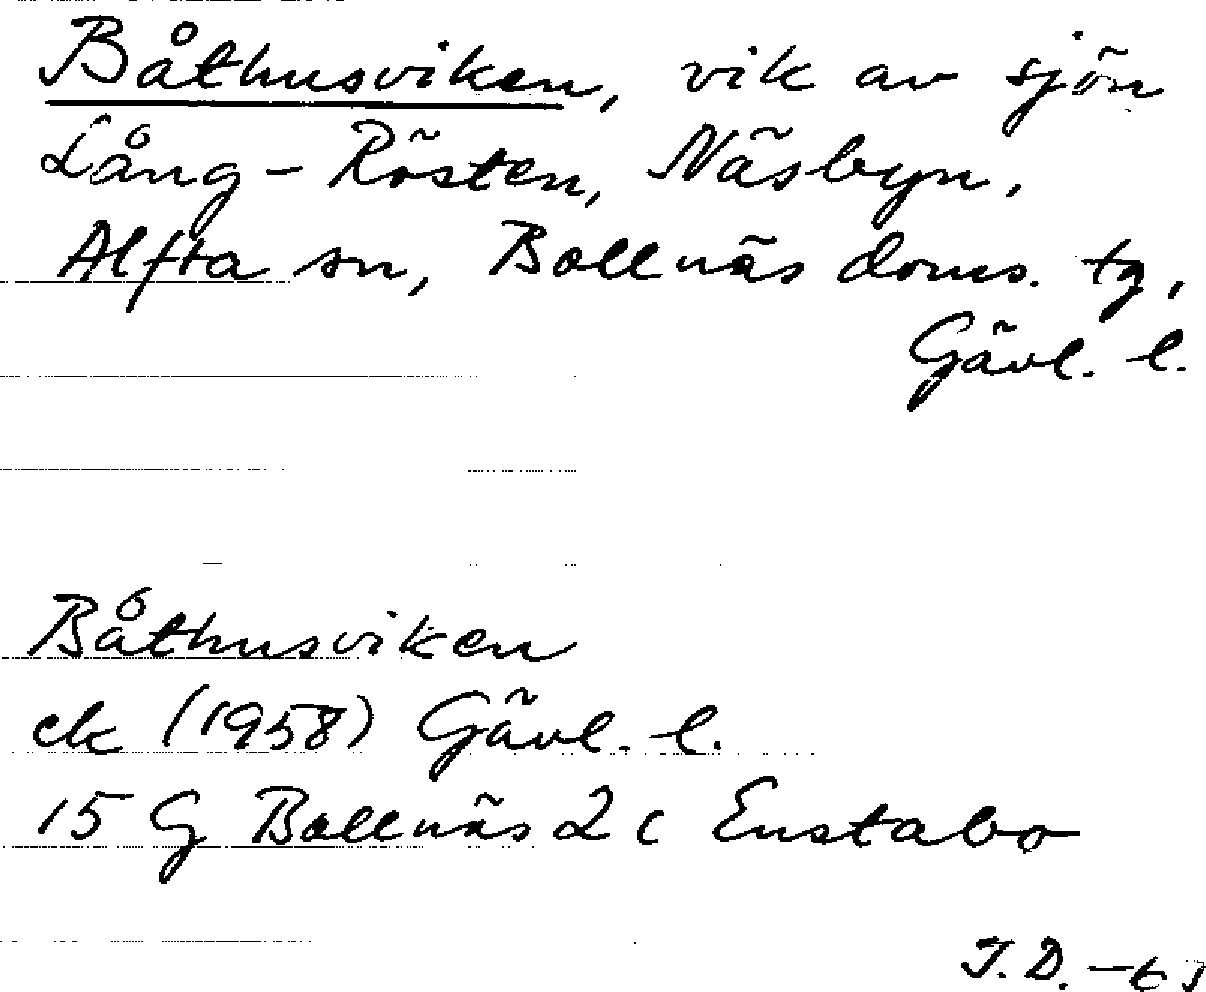 Båthusviken, vik av sjön
Lång-Rösten, Näsbyn,
Alfta sn, Bollnäs doms. tg,
Gävl. l.
Båthusviken
ek (1958) Gävl. l.
15 G Bollnäs 2 c Enstabo
T.D.